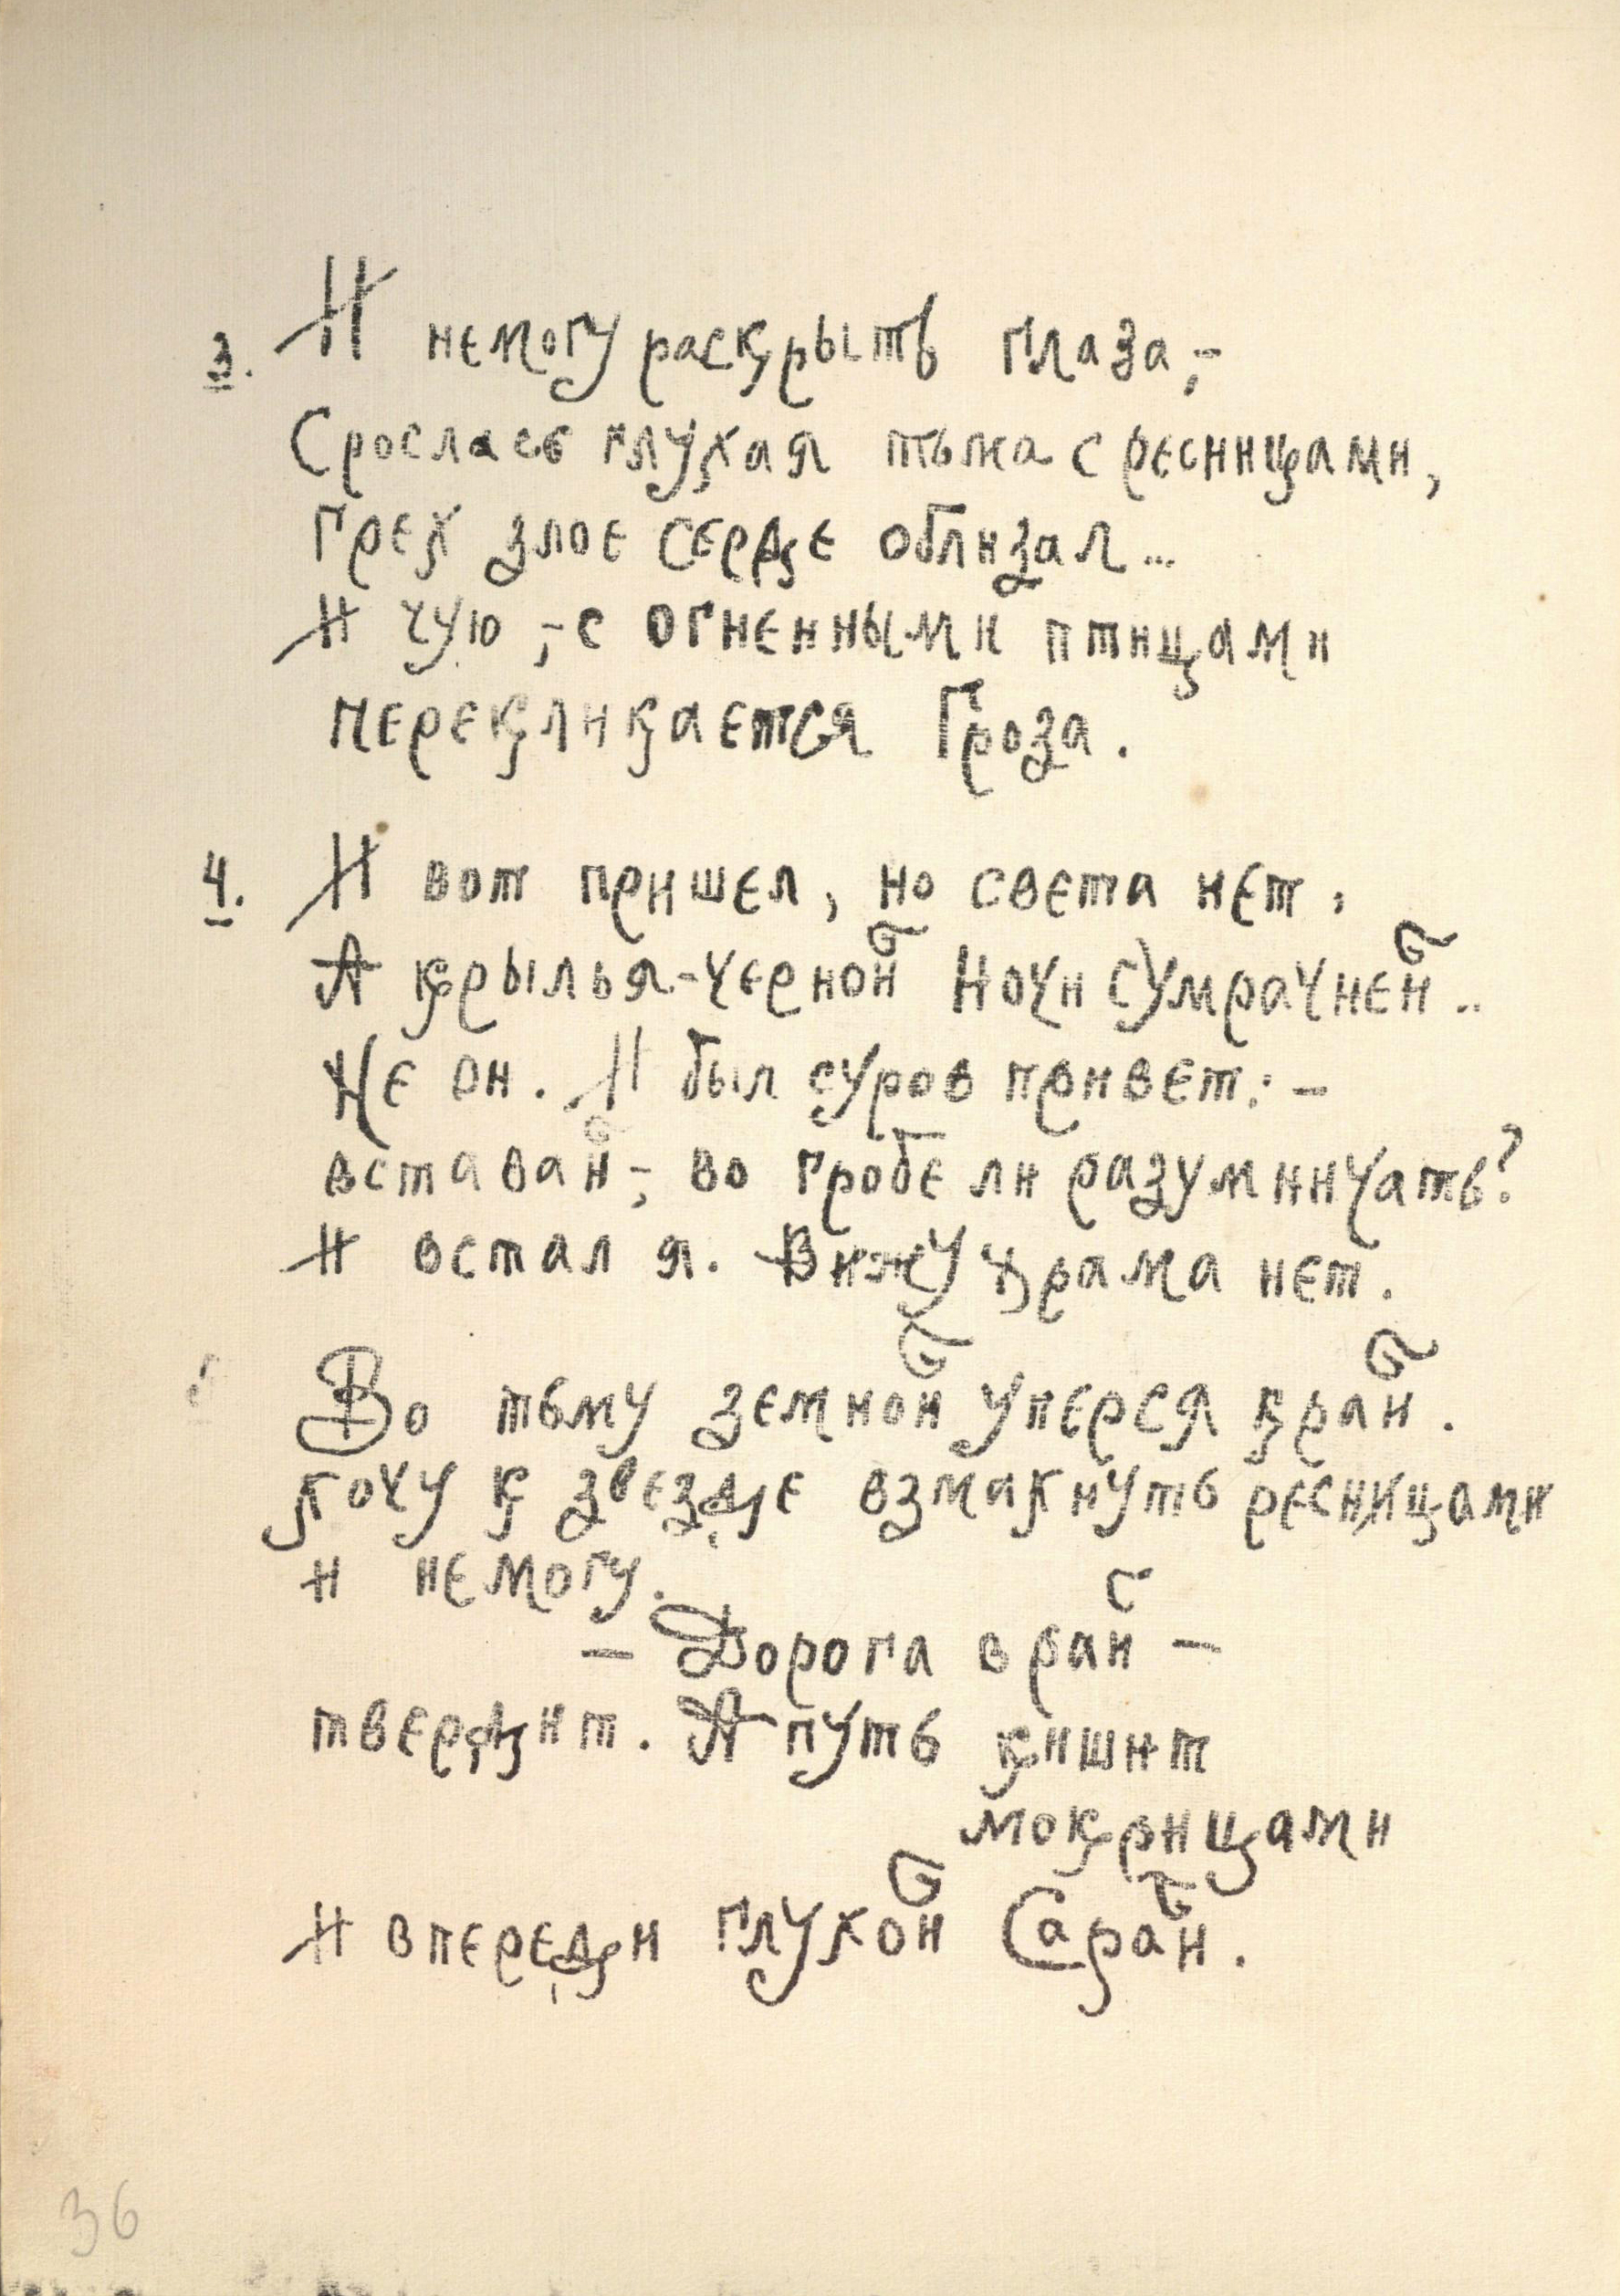 3. И немогу раскрыть глаза,-
Срослась глухая тьма с ресницами,
Грех злое сердце облизал...
И чую,- с огненными птицами
перекликается Гроза.
4. И вот пришел, но света нет.
А крылья-черной Ночи сумрачней..
Не он. И был суров привет:-
вставай-; во гробе ли разумничать?
И встал я. Вижу храма нет.
Во тьму земной уперся край.
хочу к звезде взмахнуть ресницами
и немогу.
- Дорога в рай -
твердит. А путь кишит
мокрицами
И впереди глухой Сарай.
36